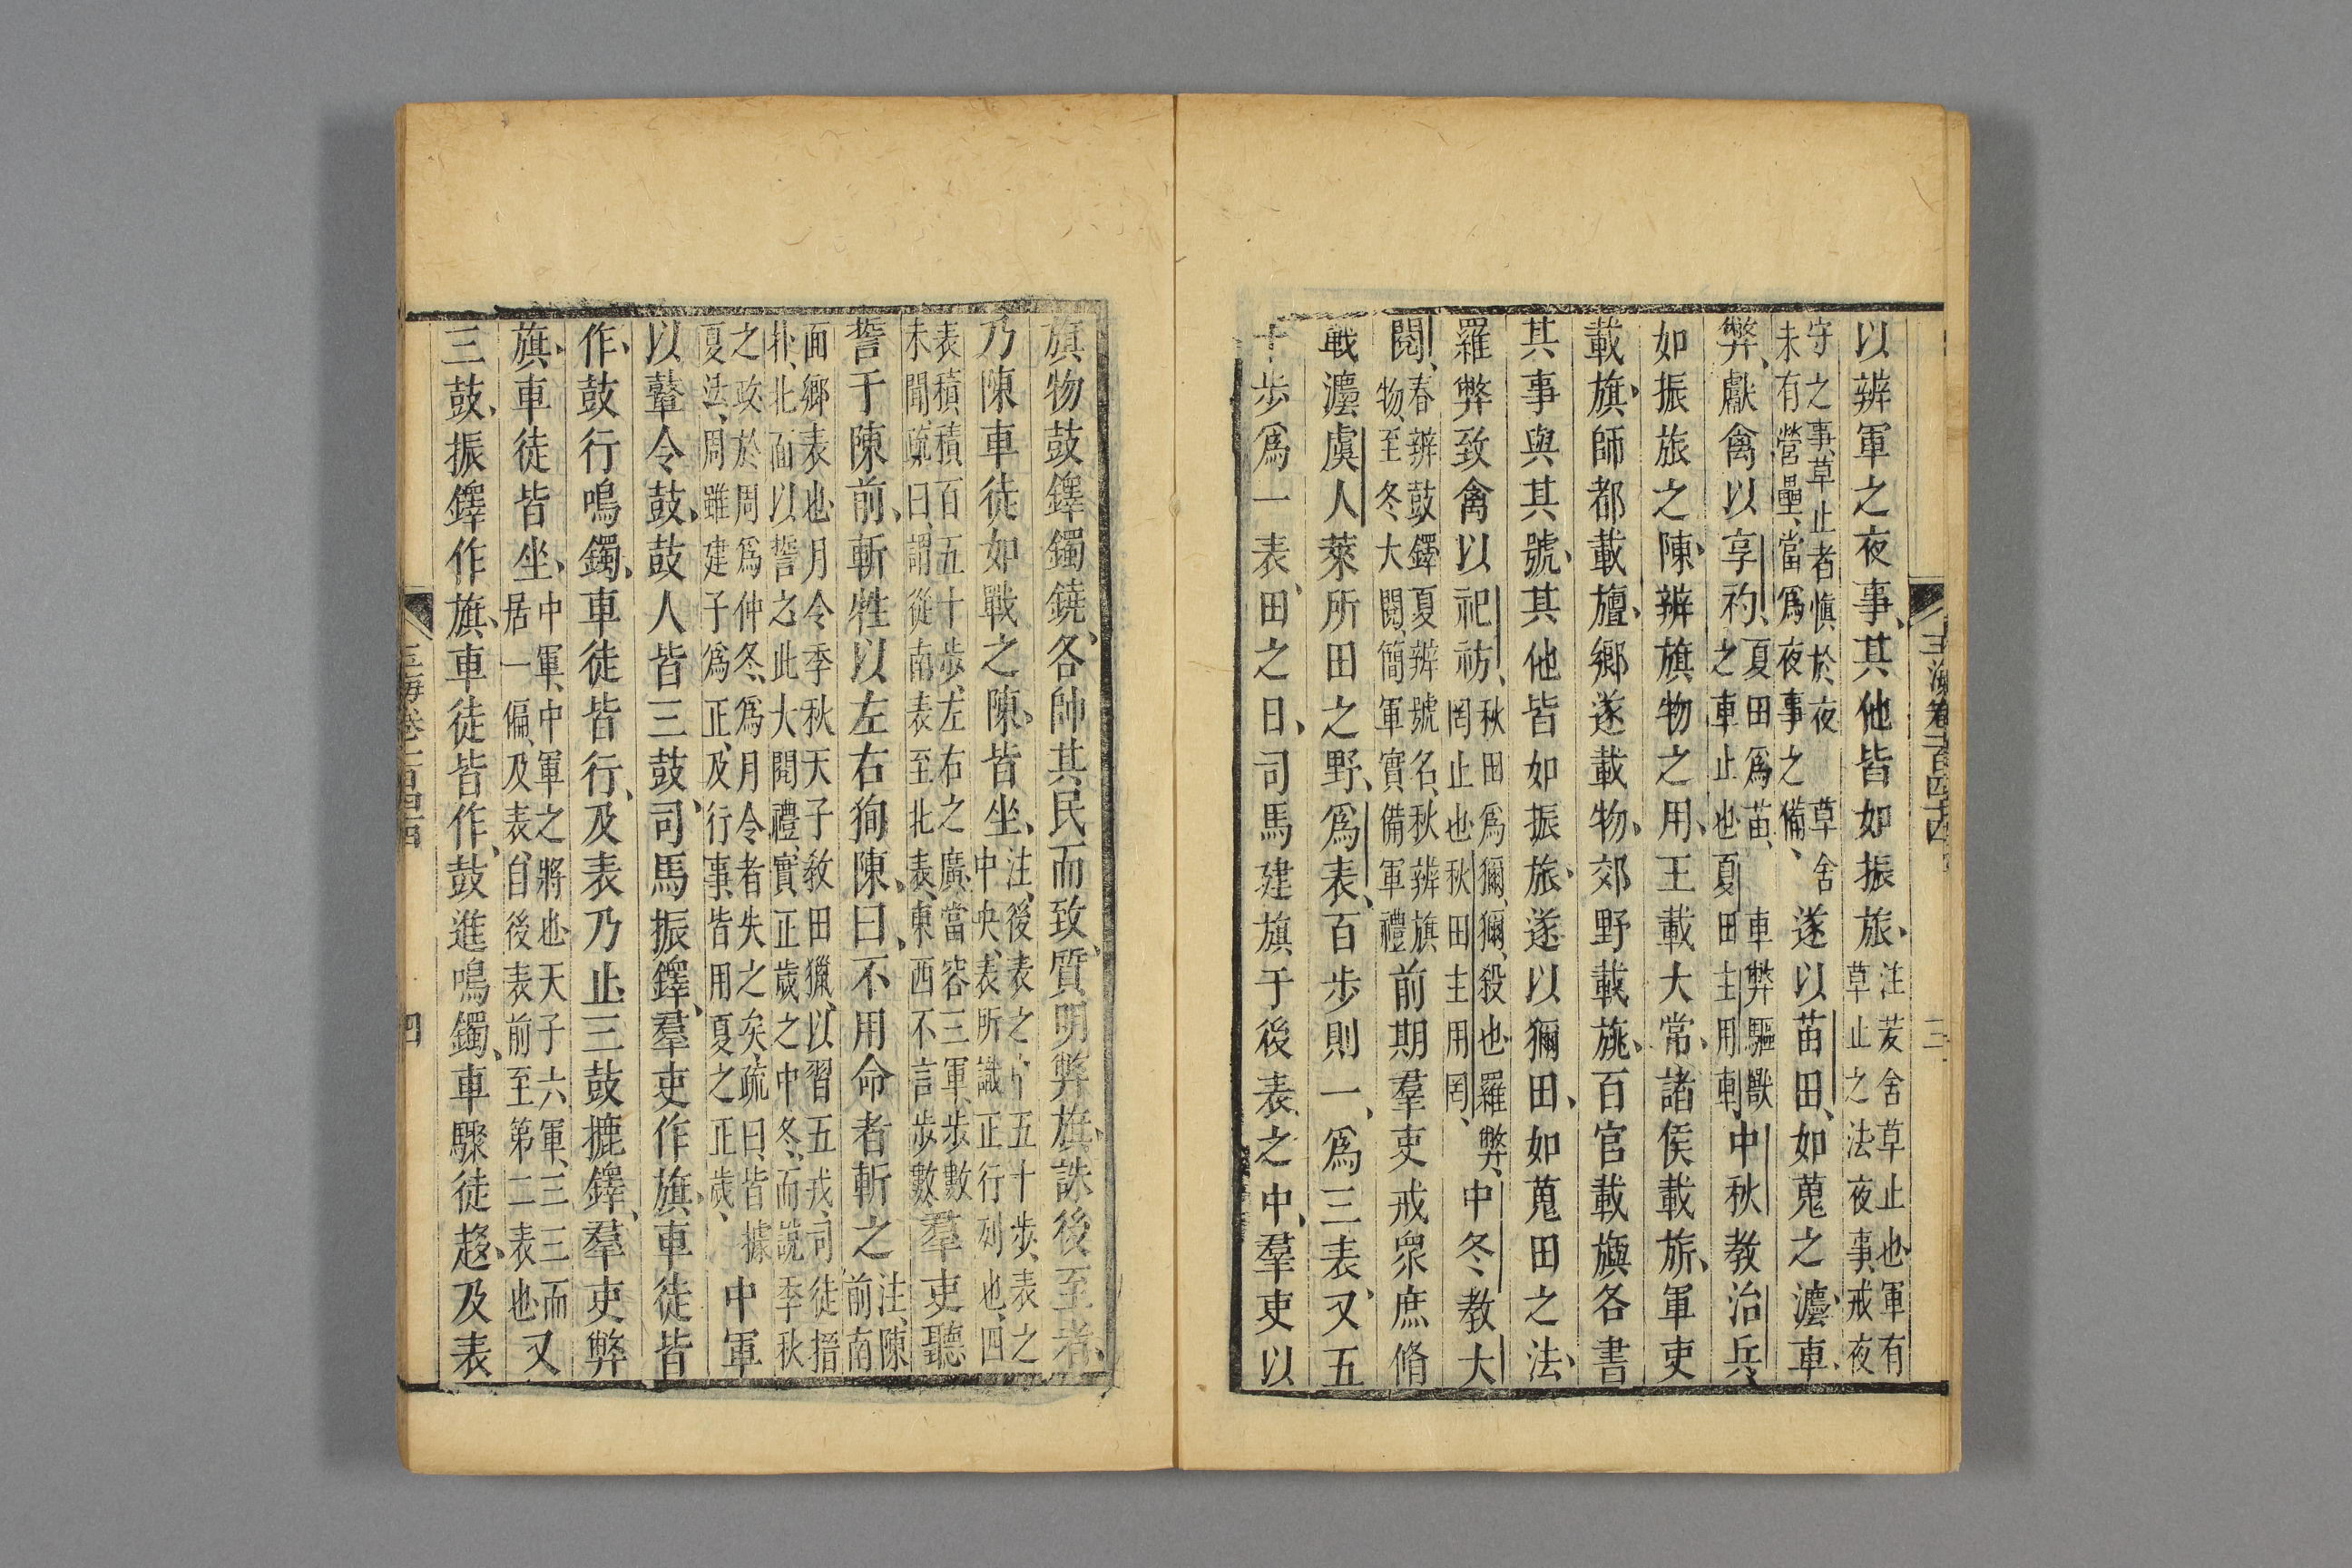 以辨軍之夜事、其他皆如振旅、注茇舍草止也軍有草止之法夜事戒夜
守之事草止者愼於夜草舍未有營壘、當爲夜事之備、遂以苗田、如蒐之灋、車
弊、獻禽以享礿、夏田爲苗、車弊驅獸之車止也夏田主用車中秋教治兵、
如振旅之陳、辨旗物之用、王載大常、諸侯載旂、軍吏
載旗、師都載旜、鄉遂載物、郊野載旐、百官載旟各書
其事與其號、其他皆如振旅、遂以獮田、如蒐田之法、
羅弊致禽以祀祊、秋田爲獮、獮、殺也羅弊、罔止也秋田主用罔、中冬教大
閱、春辨鼓鐸夏辨號名、秋辨旗物、至冬大閱、簡軍實備軍禮前期羣吏戒衆庶脩
戰灋虞人萊所田之野、爲表、百步則一、爲三表、又五
十步爲一表、田之日、司馬建旗于後表之中、羣吏以
玉海卷一百四十四 三
旗物鼓鐸鐲鐃、各帥其民而致、質明弊旗、誅後至者、
乃陳車徒如戰之陳、皆坐、注、後表之中五十步、表之中央、表所識正行列也、四
表積積百五十步、左右之廣、當容三軍、步數未聞、疏曰、謂從南表至北表、東西不言步數、羣吏聽
誓于陳前、斬牲以左右狥陳、曰、不用命者斬之注、陳前南
面鄉表也月令季秋天子教田獵、以習五戎、司徒搢扑、北面以誓之此大閱禮、實正歲之中冬、而說季秋
之政於周爲仲冬、爲月令者失之矣、疏曰、皆據夏法、周雖建子爲正、及行事皆用夏之正歲、中軍
以鼙令鼓、鼓人皆三鼓、司馬振鐸、羣吏作旗、車徒皆
作、鼓行鳴鐲、車徒皆行、及表乃止、三鼓摝鐸、羣吏弊
旗、車徒皆坐、中軍、中軍之將也、天子六軍、三三而居一偏、及表、自後表前至第二表也、又
三鼓、振鐸作旗、車徒皆作、鼓進鳴鐲、車驟徒趨、及表
玉海卷一百四十四 四